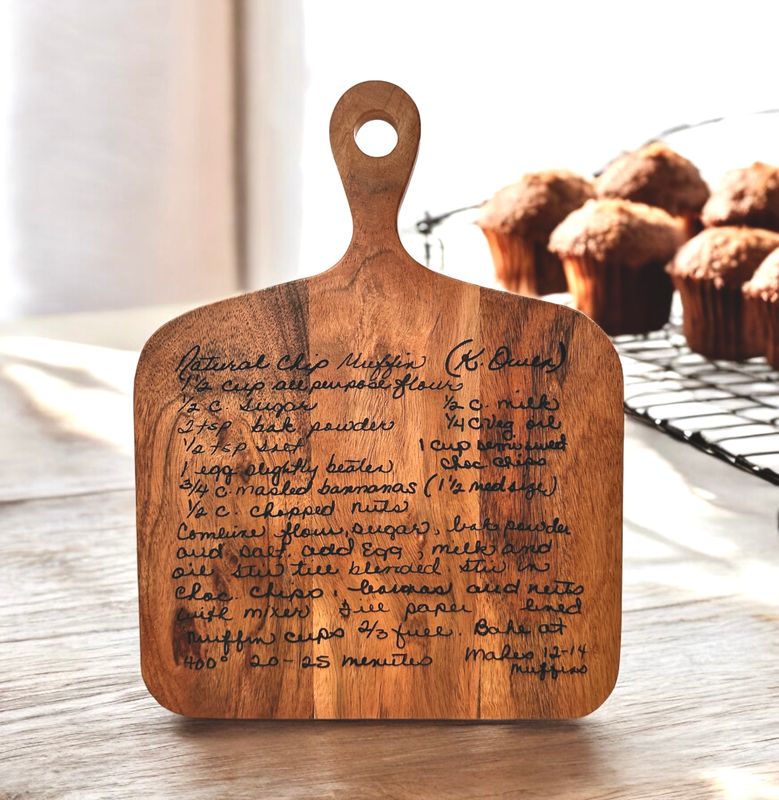 Natural Chip Muffin (K. Owen)
1 1/2 cup all purpose flour
1/2 c. sugar 1/2 c. milk
2 tsp bak powder 1/4 c veg oil
1/2 tsp salt 1 cup semi sweet
1 egg slightly beaten choc chips
3/4 c. mashed bannanas (1 1/2 med size)
1/2 c. chopped nuts
Combine flour, sugar, bak powder
and salt. add Egg, milk and
oil stir till blended stir in
choc. chips, bananas and nuts
with mixer Fill paper lined
muffin cups 2/3 full. Bake at
400° 20-25 menutes makes 12-14
muffins